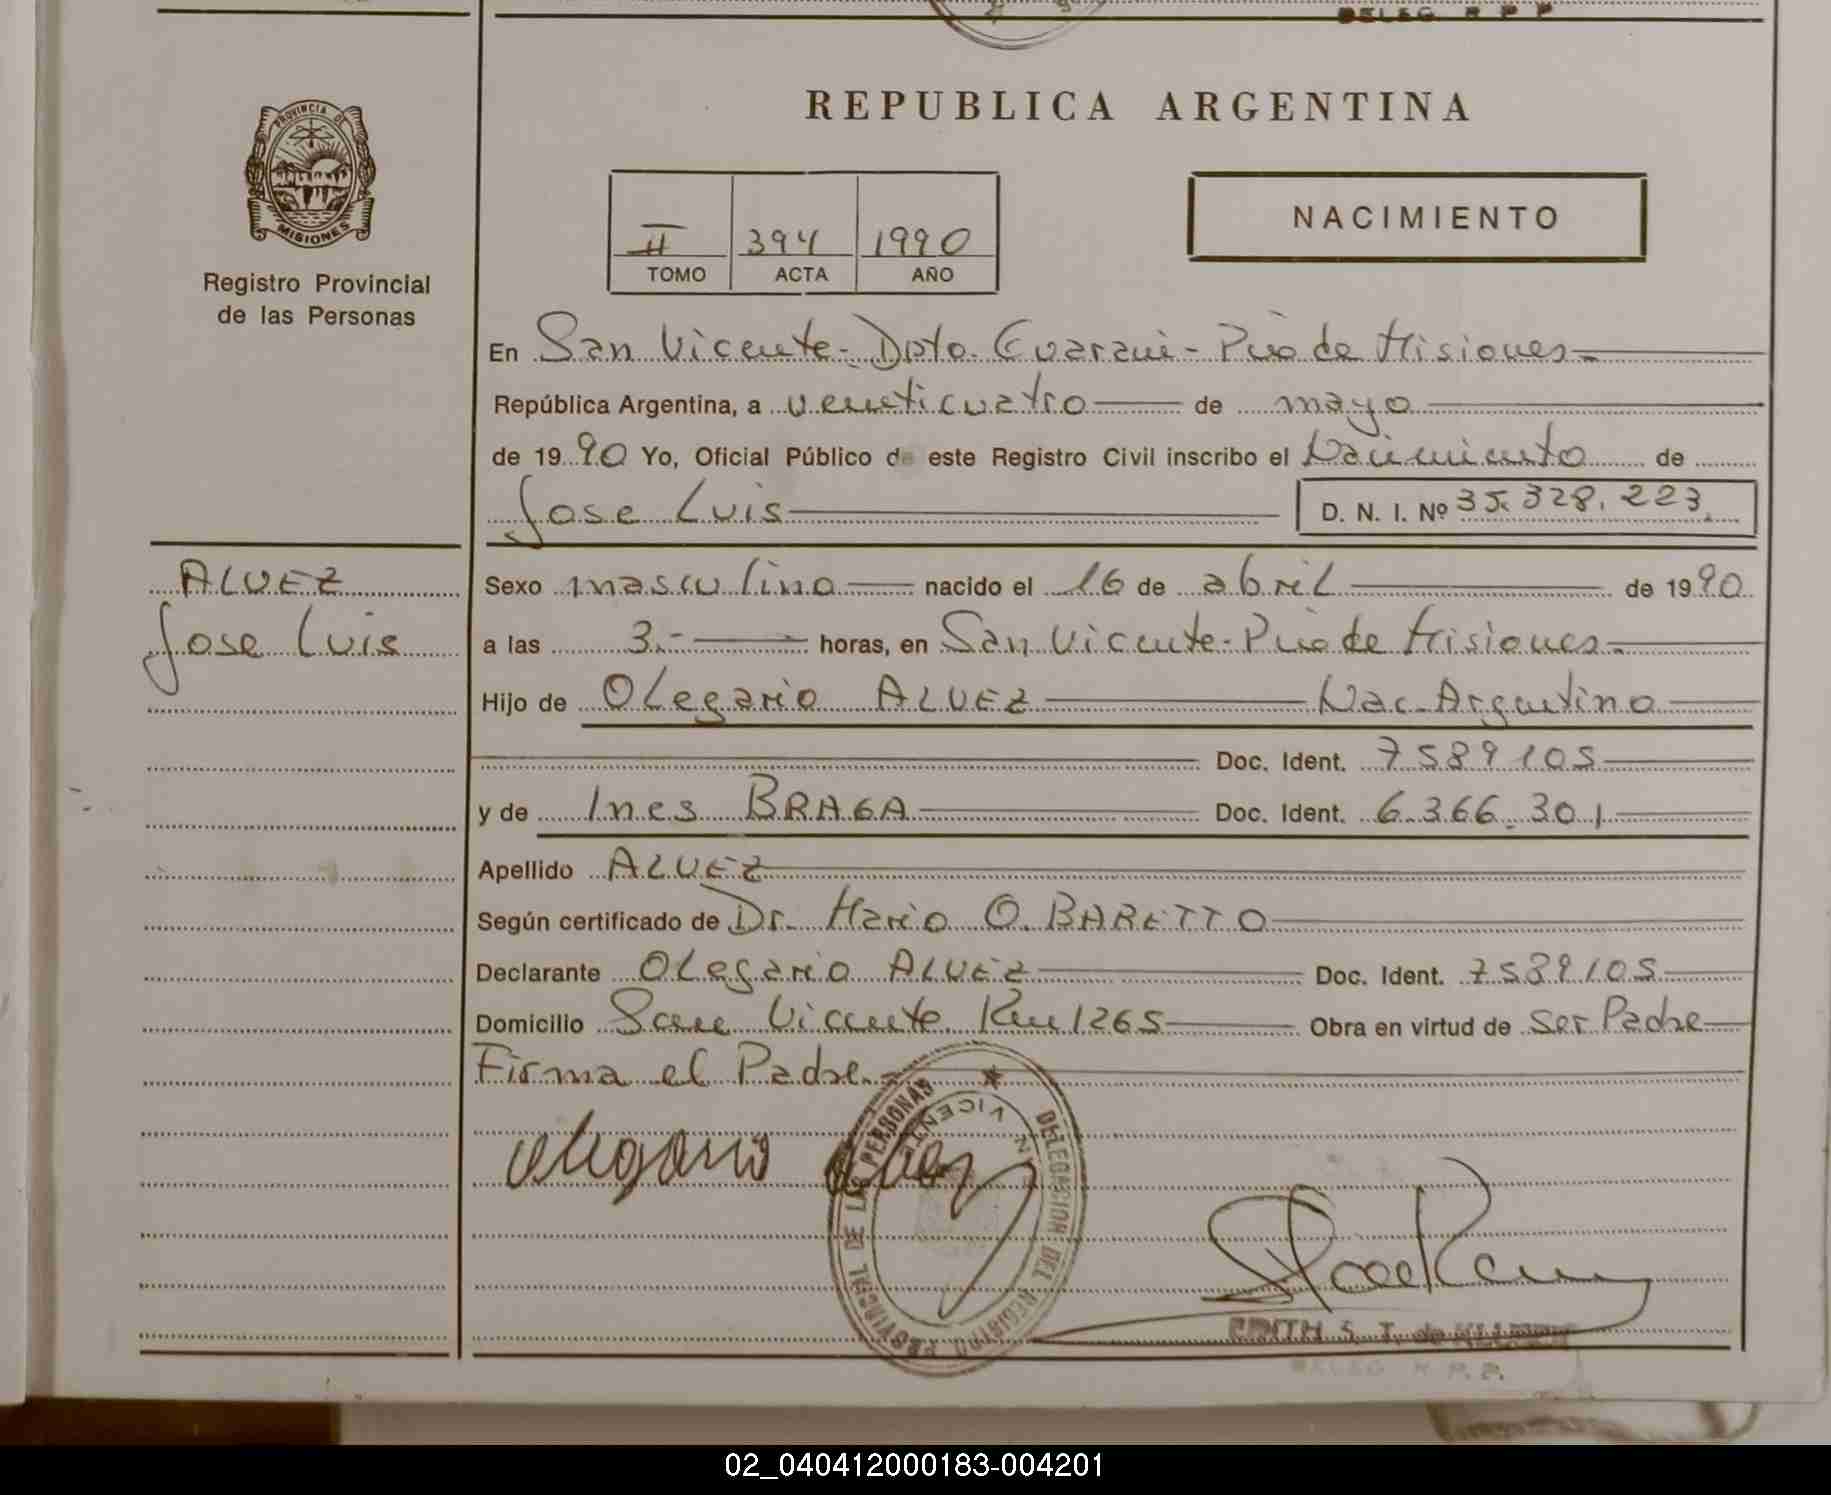 DELEG R P P
PROVINCIA DE
MISIONES
Registro Provincial
de las Personas
REPUBLICA ARGENTINA
II 394 1990
TOMO ACTA AÑO
NACIMIENTO
En San Vicente - Dpto. Guarani - Pcia de Misiones
República Argentina, a veinticuatro de mayo
de 1990 Yo, Oficial Público de este Registro Civil inscribo el Nacimiento de
Jose Luis D. N. I. Nº 35.328.223
ALVEZ
Jose Luis
Sexo masculino nacido el 16 de abril de 1990
a las 3.- horas, en San Vicente - Pcia de Misiones.
Hijo de Olegario ALVEZ Nac. Argentino
Doc. Ident. 7589105
y de Ines BRAGA Doc. Ident. 6.366.301
Apellido ALVEZ
Según certificado de Dr. Mario O. BARETTO
Declarante Olegario ALVEZ Doc. Ident. 7589105
Domicilio San Vicente Km 1265 Obra en virtud de ser Padre
Firma el Padre
olegario alvez
DELEGACION DEL REGISTRO PROVINCIAL DE LAS PERSONAS
VICENTE
EDITH S. T. de
DELEG R P. P.
02_040412000183-004201